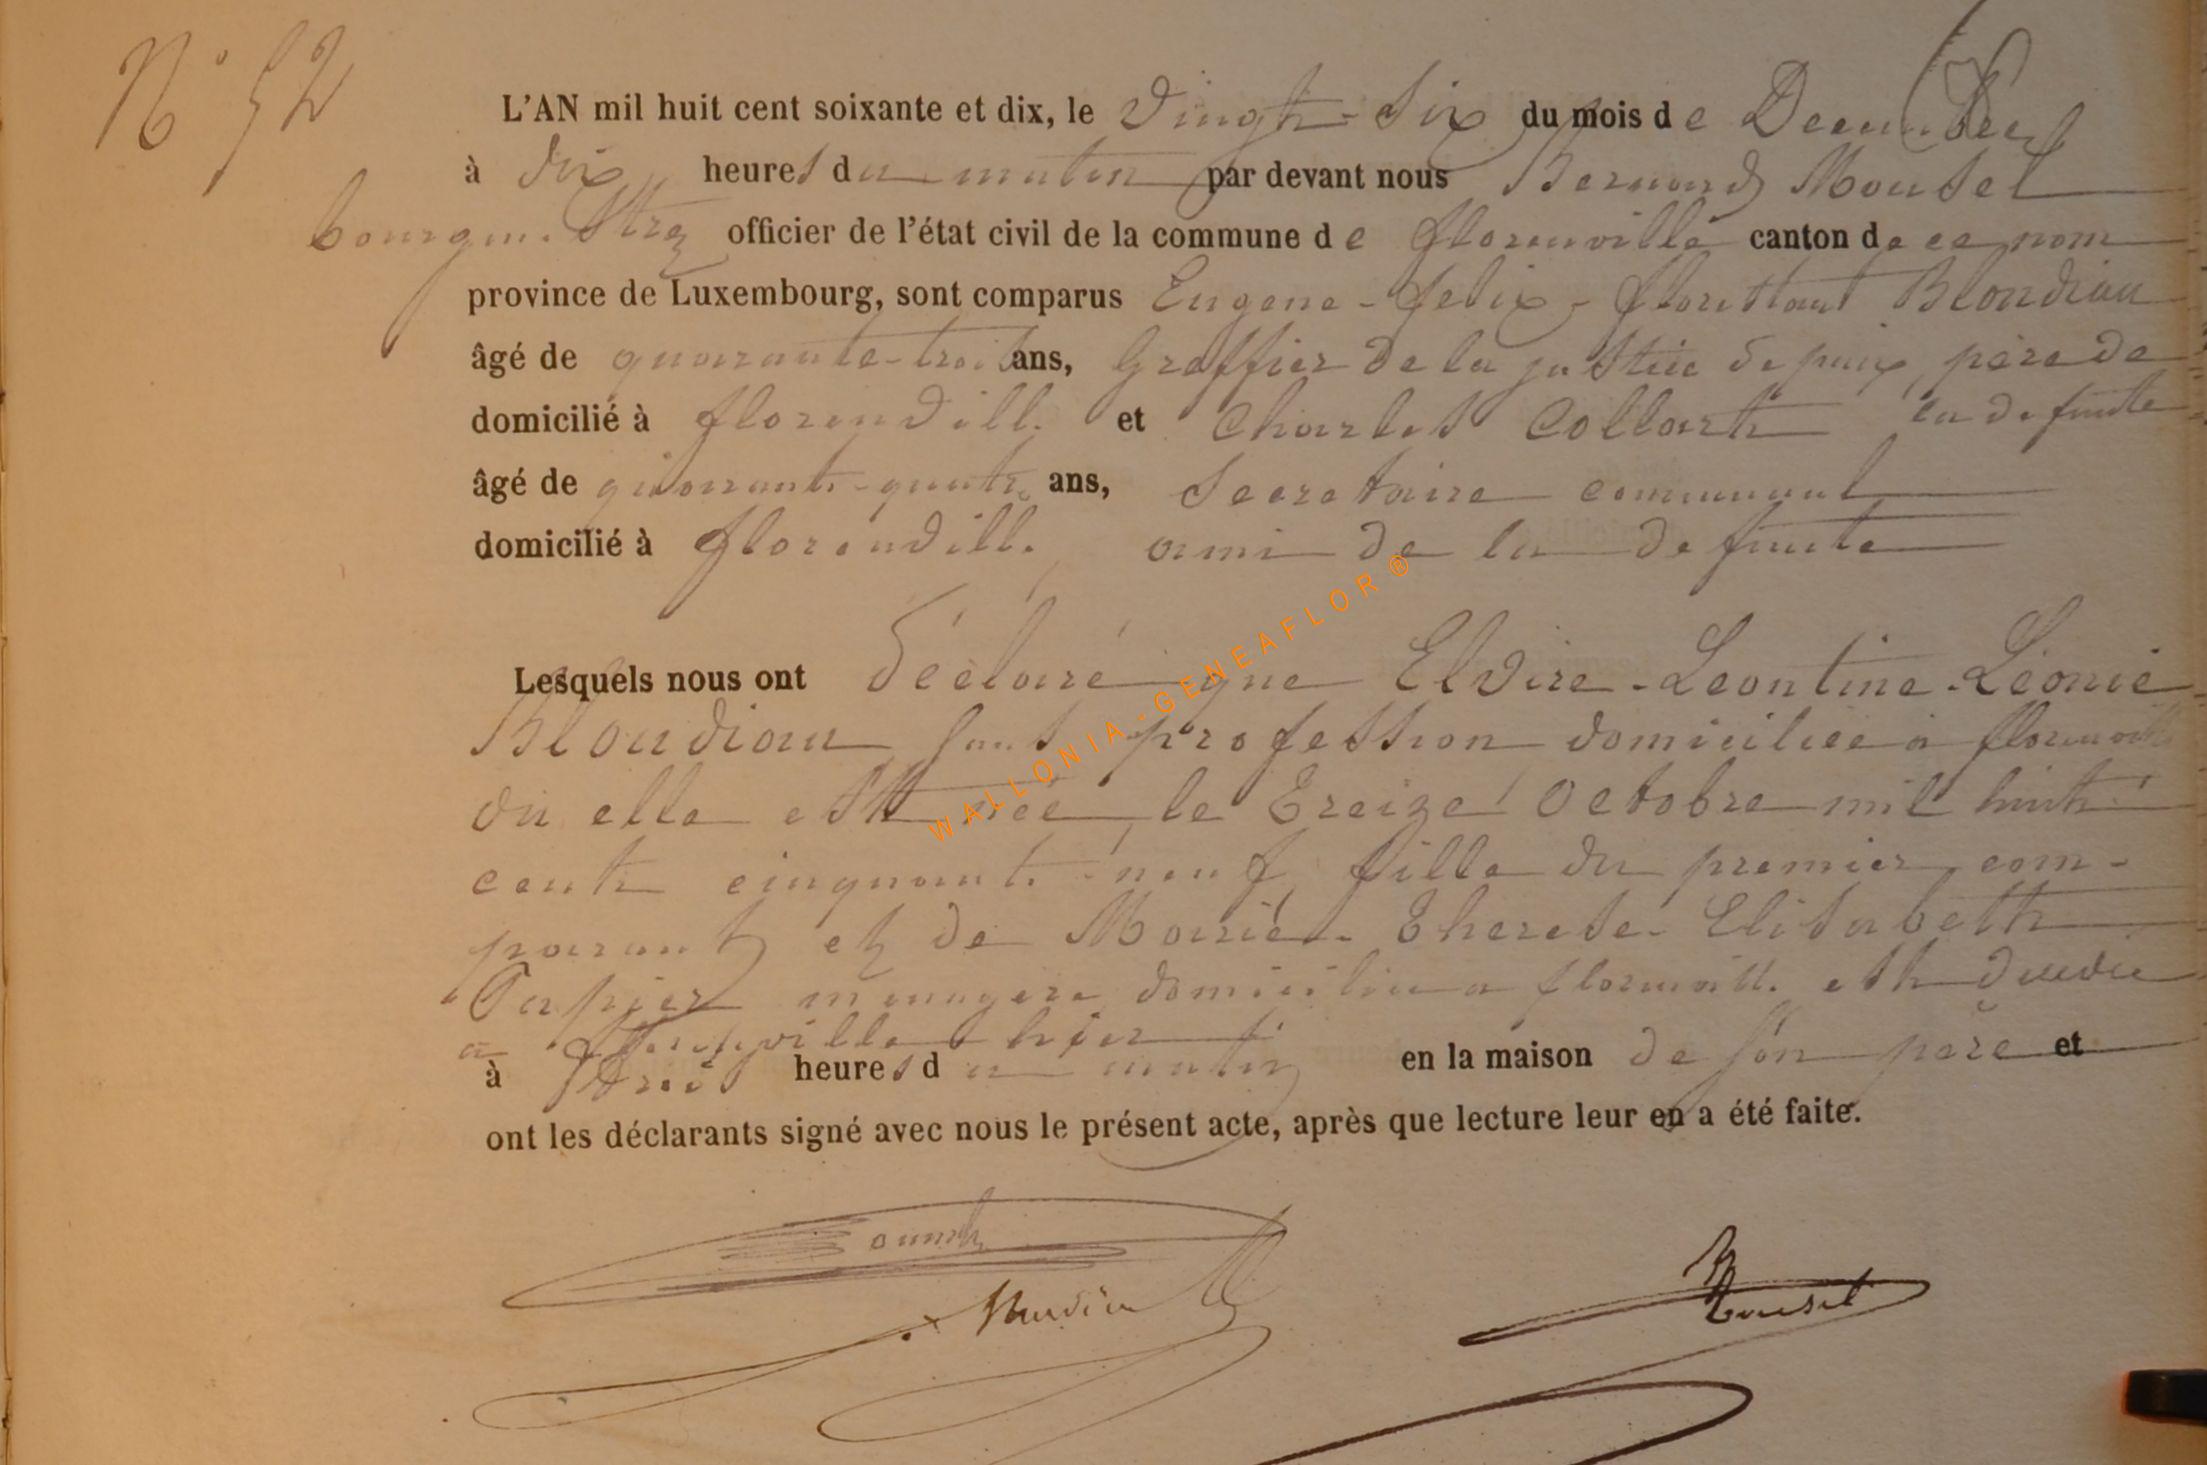 N° 52
L'AN mil huit cent soixante et dix, le vingt-six du mois de Decembre
à dix heures du matin par devant nous Bernard Mousel
bourgmestre officier de l'état civil de la commune de florenville canton de ce nom
province de Luxembourg, sont comparus Eugene-felix-floristant Blondiau
âgé de quarante-trois ans, Greffier de la justice de paix, père de
domicilié à florenville et Charles Collart la defunte
âgé de quarante-quatre ans, Secretaire communal
domicilié à florenville ami de la defunte
WALLONIA-GENEAFLOR ®
Lesquels nous ont déclaré que Elvire-Leontine-Léonie
Blondiau sans profession domiciliée à florenville
où elle est née le treize Octobre mil huit
cent cinquante-neuf, fille du premier com-
parant et de Marie-Therese-Elisabeth
menagere domiciliée a florenville est décédée
a florenville hier
à trois heures du matin en la maison de son père et
ont les déclarants signé avec nous le présent acte, après que lecture leur en a été faite.
Blondiau
Mousel